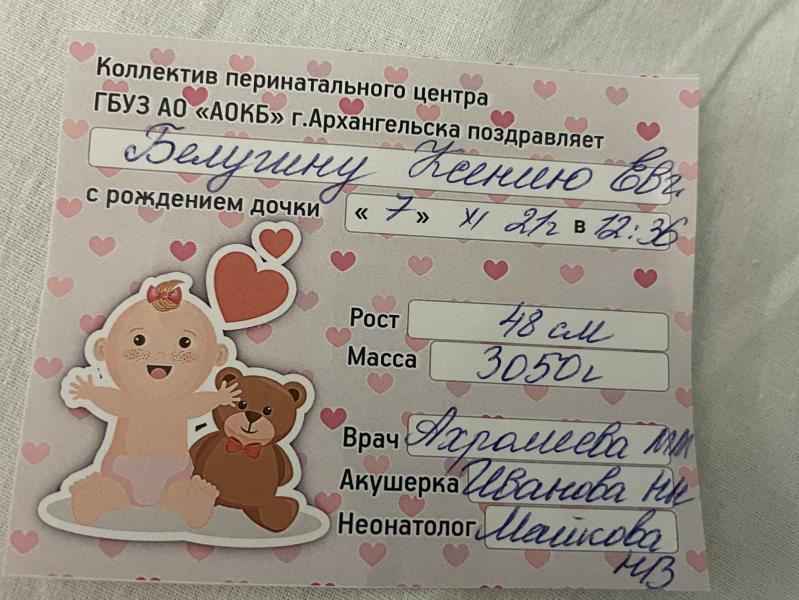 Коллектив перинатального центра
ГБУЗ АО «АОКБ» г.Архангельска поздравляет
Белугину Ксению Евг.
с рождением дочки « 7 » XI 21г в 12:36
Рост 48 см
Масса 3050г
Врач Ахромеева ММ
Акушерка Иванова НН
Неонатолог Майкова
НВ